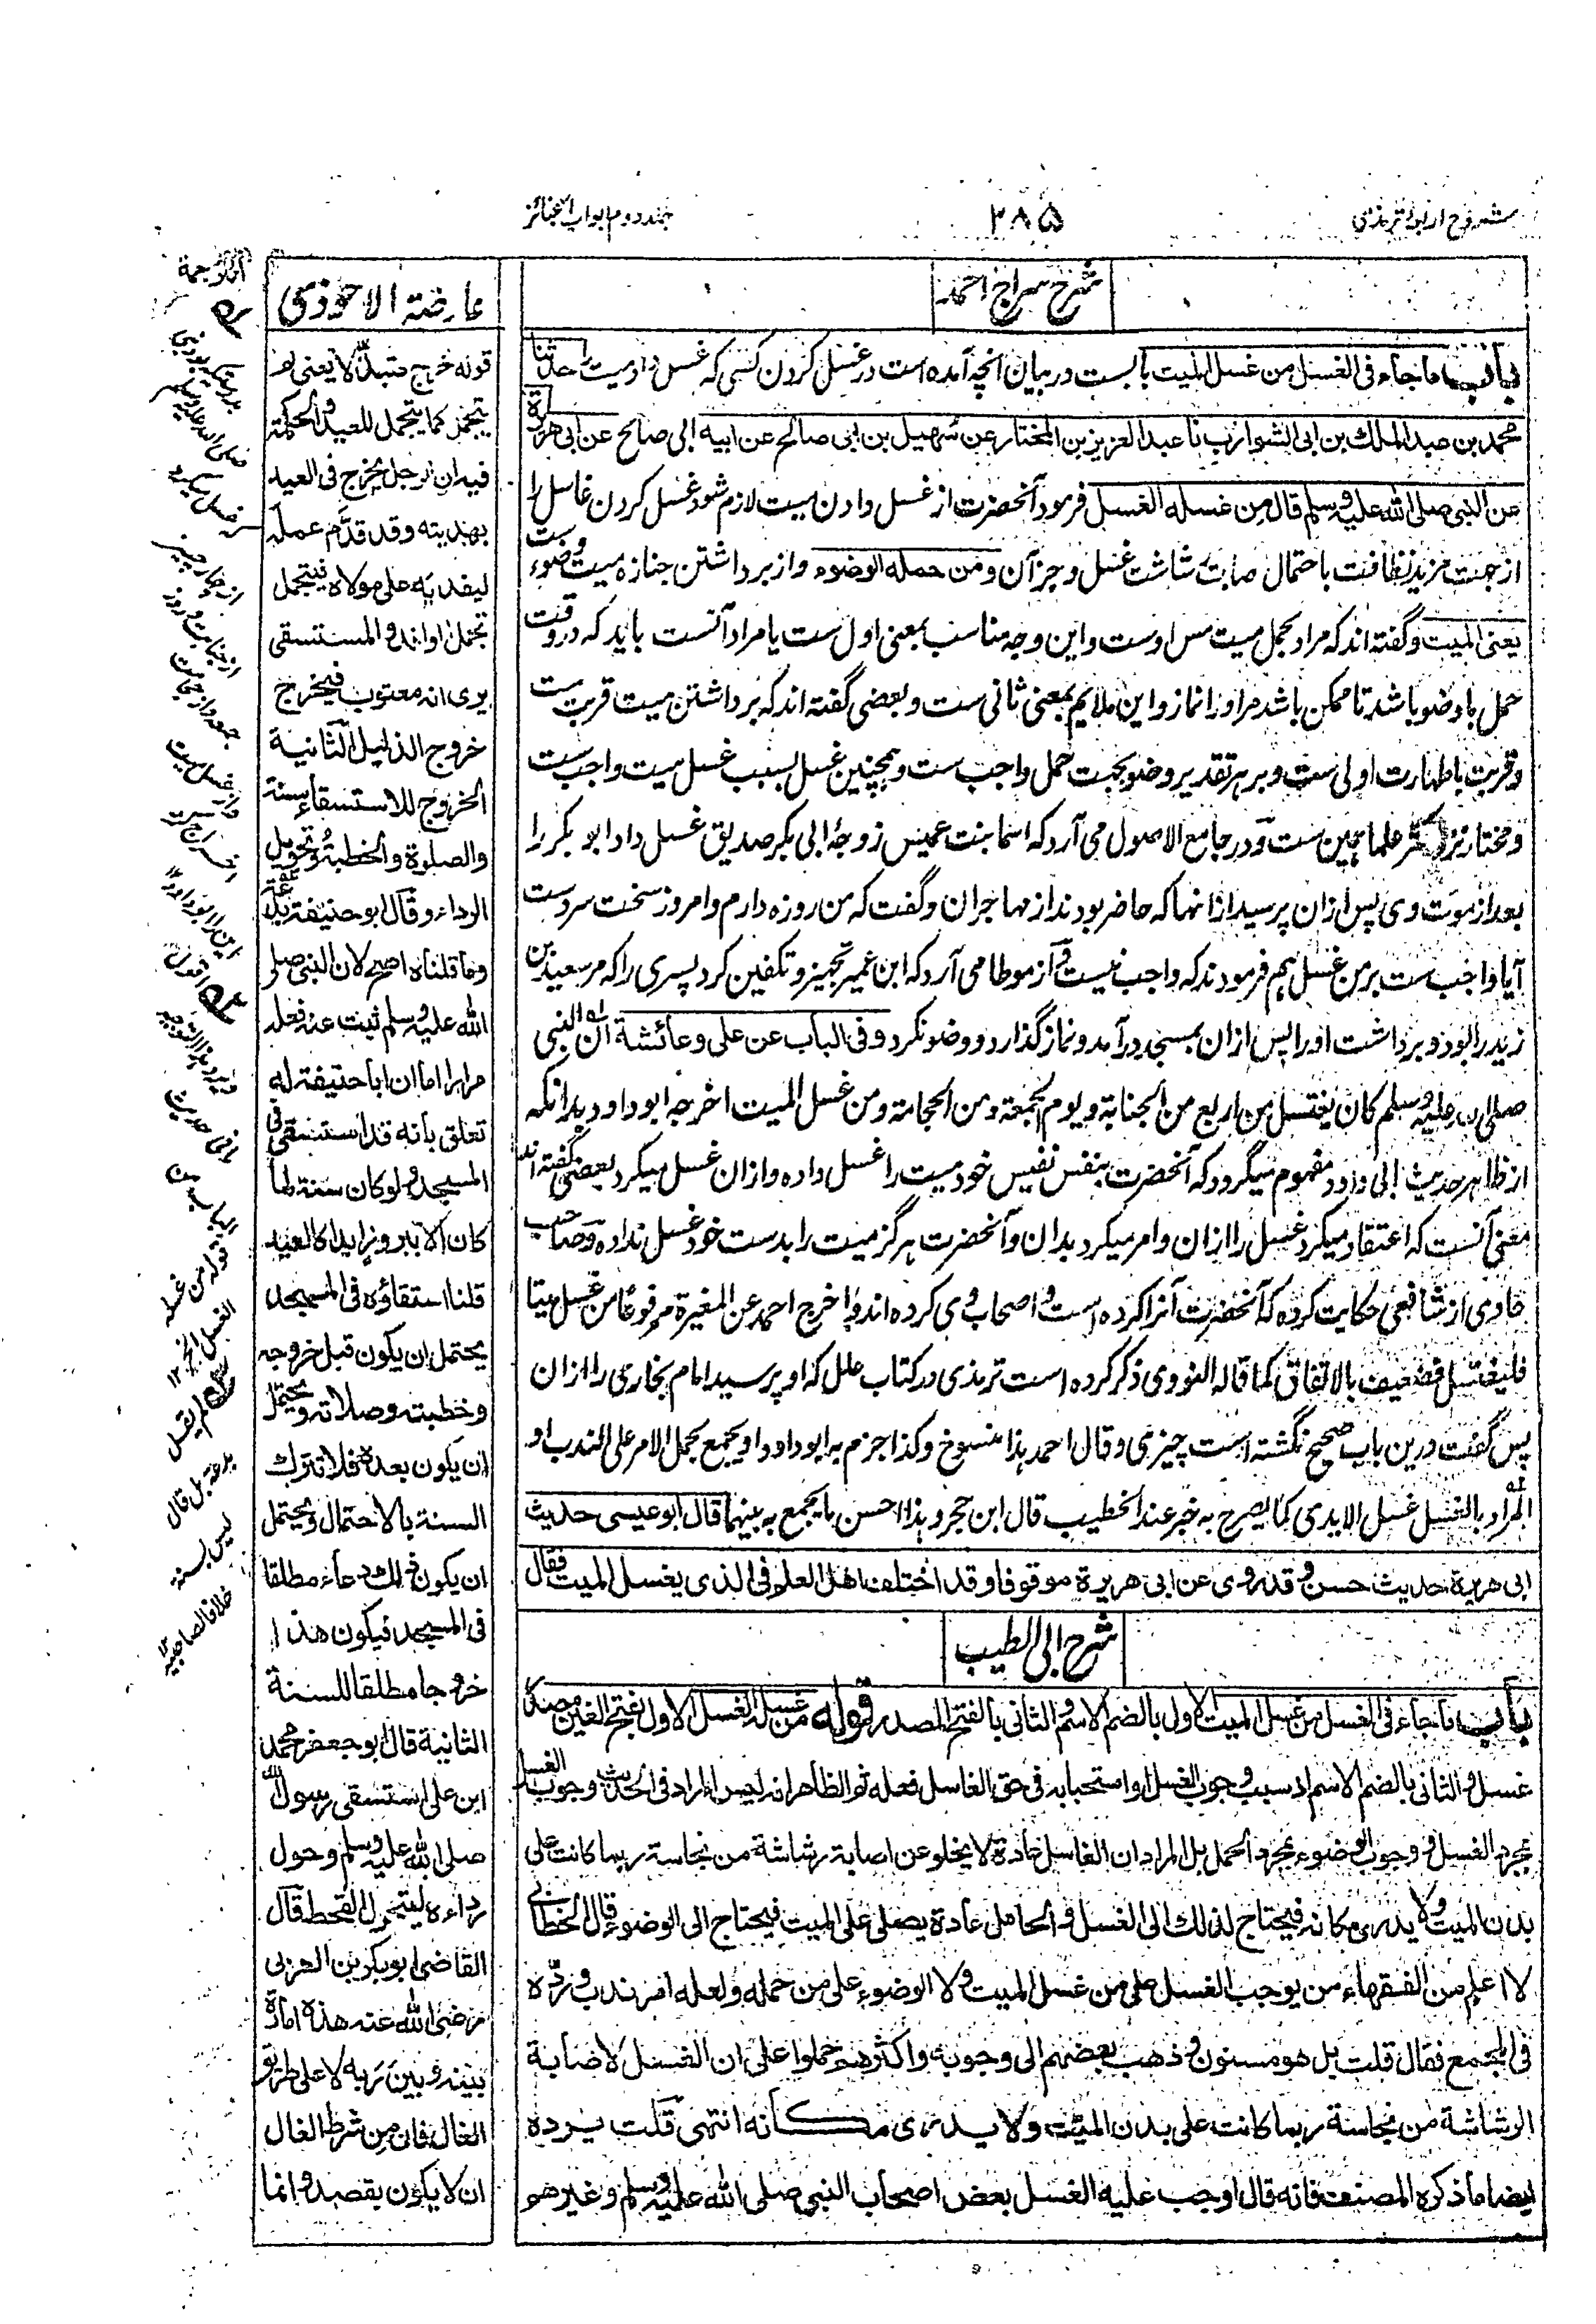 شروح اربعه ترمذی
۲۸۵
جلد دوم ابواب الجنائز
شرح سراج احمد
باب ما جاء فی الغسل من غسل المیت بابست در بیان انچه آمده است در غسل کردن کسی که غسل داد میت را حدثنا
محمد بن عبد الملك بن ابی الشوارب نا عبد العزیز بن المختار عن سهیل بن ابی صالح عن ابیه ابی صالح عن ابی هریرة
عن النبی صلی الله علیه وسلم قال من غسله الغسل فرمود آنحضرت از غسل دادن میت لازم شود غسل کردن غاسل را
از جهت مزید نظافت باحتمال صابت شاشت غسل و جز آن ومن حمله الوضوء واز برداشتن جنازه میت وضوء ست
یعنی المیت وگفته اند که مراد بحمل میت مس اوست واین وجه مناسب بمعنی اول ست یا مراد آنست باید که در وقت
حمل باوضو باشد تا ممکن باشد مر اورا نماز واین ملایم بمعنی ثانی ست وبعضی گفته اند که برداشتن میت قربت ست
وقربت باطهارت اولی ست وبر هر تقدیر وضو بجهت حمل واجب ست وهمچنین غسل بسبب غسل میت واجب ست
ومختار نزد اکثر علما همین ست ودر جامع الاصول می آرد که اسما بنت عمیس زوجهٔ ابی بکر صدیق غسل داد ابو بکر را
بعد از موت وی پس ازان پرسید ازانها که حاضر بودند از مهاجران وگفت که من روزه دارم وامروز سخت سردست
آیا واجب ست بر من غسل هم فرمودند که واجب نیست واز موطا می آرد که ابن عمیر تجهیز وتکفین کرد پسری را که مر سعید بن
زید را بود وبرداشت اورا پس ازان بمسجد درآمد ونماز گذارد ووضو نکرد وفی الباب عن علی وعائشة ان النبی
صلی الله علیه وسلم کان یغتسل من اربع من الجنابة ویوم الجمعة ومن الحجامة ومن غسل المیت اخرجه ابو داود بدانکه
از ظاهر حدیث ابی داود مفهوم میگردد که آنحضرت بنفس نفیس خود میت را غسل داده وازان غسل میکرد بعضی گفته اند
معنی آنست که اعتقاد میکرد غسل را ازان وامر میکرد بدان وآنحضرت هرگز میت را بدست خود غسل نداده وصاحب
حاوی از شافعی حکایت کرده که آنحضرت آنرا کرده است واصحاب وی کرده اند واخرج احمد عن المغیرة مرفوعا من غسل میتا
فلیغتسل فضعیف بالاتفاق کما قاله النووی ذکر کرده است ترمذی در کتاب علل که او پرسید امام بخاری را ازان
پس گفت درین باب صحیح نگشته است چیزی وقال احمد هذا منسوخ وکذا جزم به ابو داود ویجمع بحمل الامر علی الندب او
المراد بالغسل غسل الایدی کما یصرح به خبر عند الخطیب قال ابن حجر وهذا احسن ما یجمع به بینهما قال ابو عیسی حدیث
ابی هریرة حدیث حسن وقد روی عن ابی هریرة موقوفا وقد اختلف اهل العلم فی الذی یغسل المیت فقال
شرح ابی الطیب
باب ما جاء فی الغسل من غسل المیت الاول بالضم الاسم والثانی بالفتح المصدر قوله من غسله الغسل الاول بفتح الغین مصدر
غسل والثانی بالضم الاسم اذ سبب وجوب الغسل او استحبابه فی حق الغاسل فعله ثم الظاهر انه لیس المراد فی الحدیث وجوب الغسل
بمجرد الغسل ووجوب الوضوء بمجرد الحمل بل المراد ان الغاسل عادة لا یخلو عن اصابة رشاشة من نجاسة ربما کانت علی
بدن المیت ولا یدری مکانه فیحتاج لذلك الی الغسل والحامل عادة یصلی علی المیت فیحتاج الی الوضوء قال الخطابی
لا اعلم من الفقهاء من یوجب الغسل علی من غسل المیت ولا الوضوء علی من حمله ولعله امر ندب وردّه
فی المجمع فقال قلت بل هو مسنون وذهب بعضهم الی وجوبه واکثرهم حملوا علی ان الغسل لاصابة
الرشاشة من نجاسة ربما کانت علی بدن المیت ولا یدری مکانه انتهی قلت یرده
ایضا ما ذکره المصنف فانه قال اوجب علیه الغسل بعض اصحاب النبی صلی الله علیه وسلم وغیرهم
عارضة الاحوذی
قوله خرج متبذّلا یعنی لم
یتجمل کما یتجمل للعید والحکمة
فیه ان الرجل یخرج فی العید
بهدیته وقد قدّم عمله
لیفد به علی مولاه فیتجمل
تجمل اوانه والمستسقی
یری انه معتوب فیخرج
خروج الذلیل الثانیة
الخروج للاستسقاء سنة
والصلوة والخطبة وتحویل
الرداء وقال ابو حنیفة بدعة
وما قلناه اصح لان النبی صلی
الله علیه وسلم ثبت عنه فعله
مرارا اما ان ابا حنیفة له
تعلق بانه قد استسقی فی
المسجد ولو کان سنة لما
کان الا بروز ابدا کالعید
قلنا استسقاؤه فی المسجد
یحتمل ان یکون قبل خروجه
وخطبته وصلاته ویحتمل
ان یکون بعده فلا تترك
السنة بالاحتمال ویحتمل
ان یکون ذلك دعاء مطلقا
فی المسجد فیکون هذا
خروجا مطلقا للسنة
الثانیة قال ابو جعفر محمد
ابن علی استسقی رسول الله
صلی الله علیه وسلم وحول
رداءه لیتحول القحط قال
القاضی ابو بکر بن العربی
رضی الله عنه هذه امارة
بینه وبین ربه لا علی طریق
الفال فان من شرط الفال
ان لا یکون بقصد وانما
صلی الله علیه وسلم
غسل میکرد
از چهار چیز
از جنابت وروز
جمعه واز حجامت
واز غسل میت
الباب
قوله من غسله
الغسل الخ ۱۲
لم یقل
بدعة بل قال
لیس بسنة
خلافا لصاحبیه ۱۲